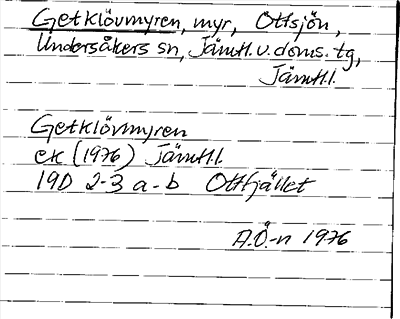 Getklövmyren, myr, Ottsjön,
Undersåkers sn, Jämtl. v. doms. tg,
Jämtl. l.
Getklövmyren
ek (1976) Jämtl. l.
19D 2-3 a-b Ottfjället
A.Ö-n 1976